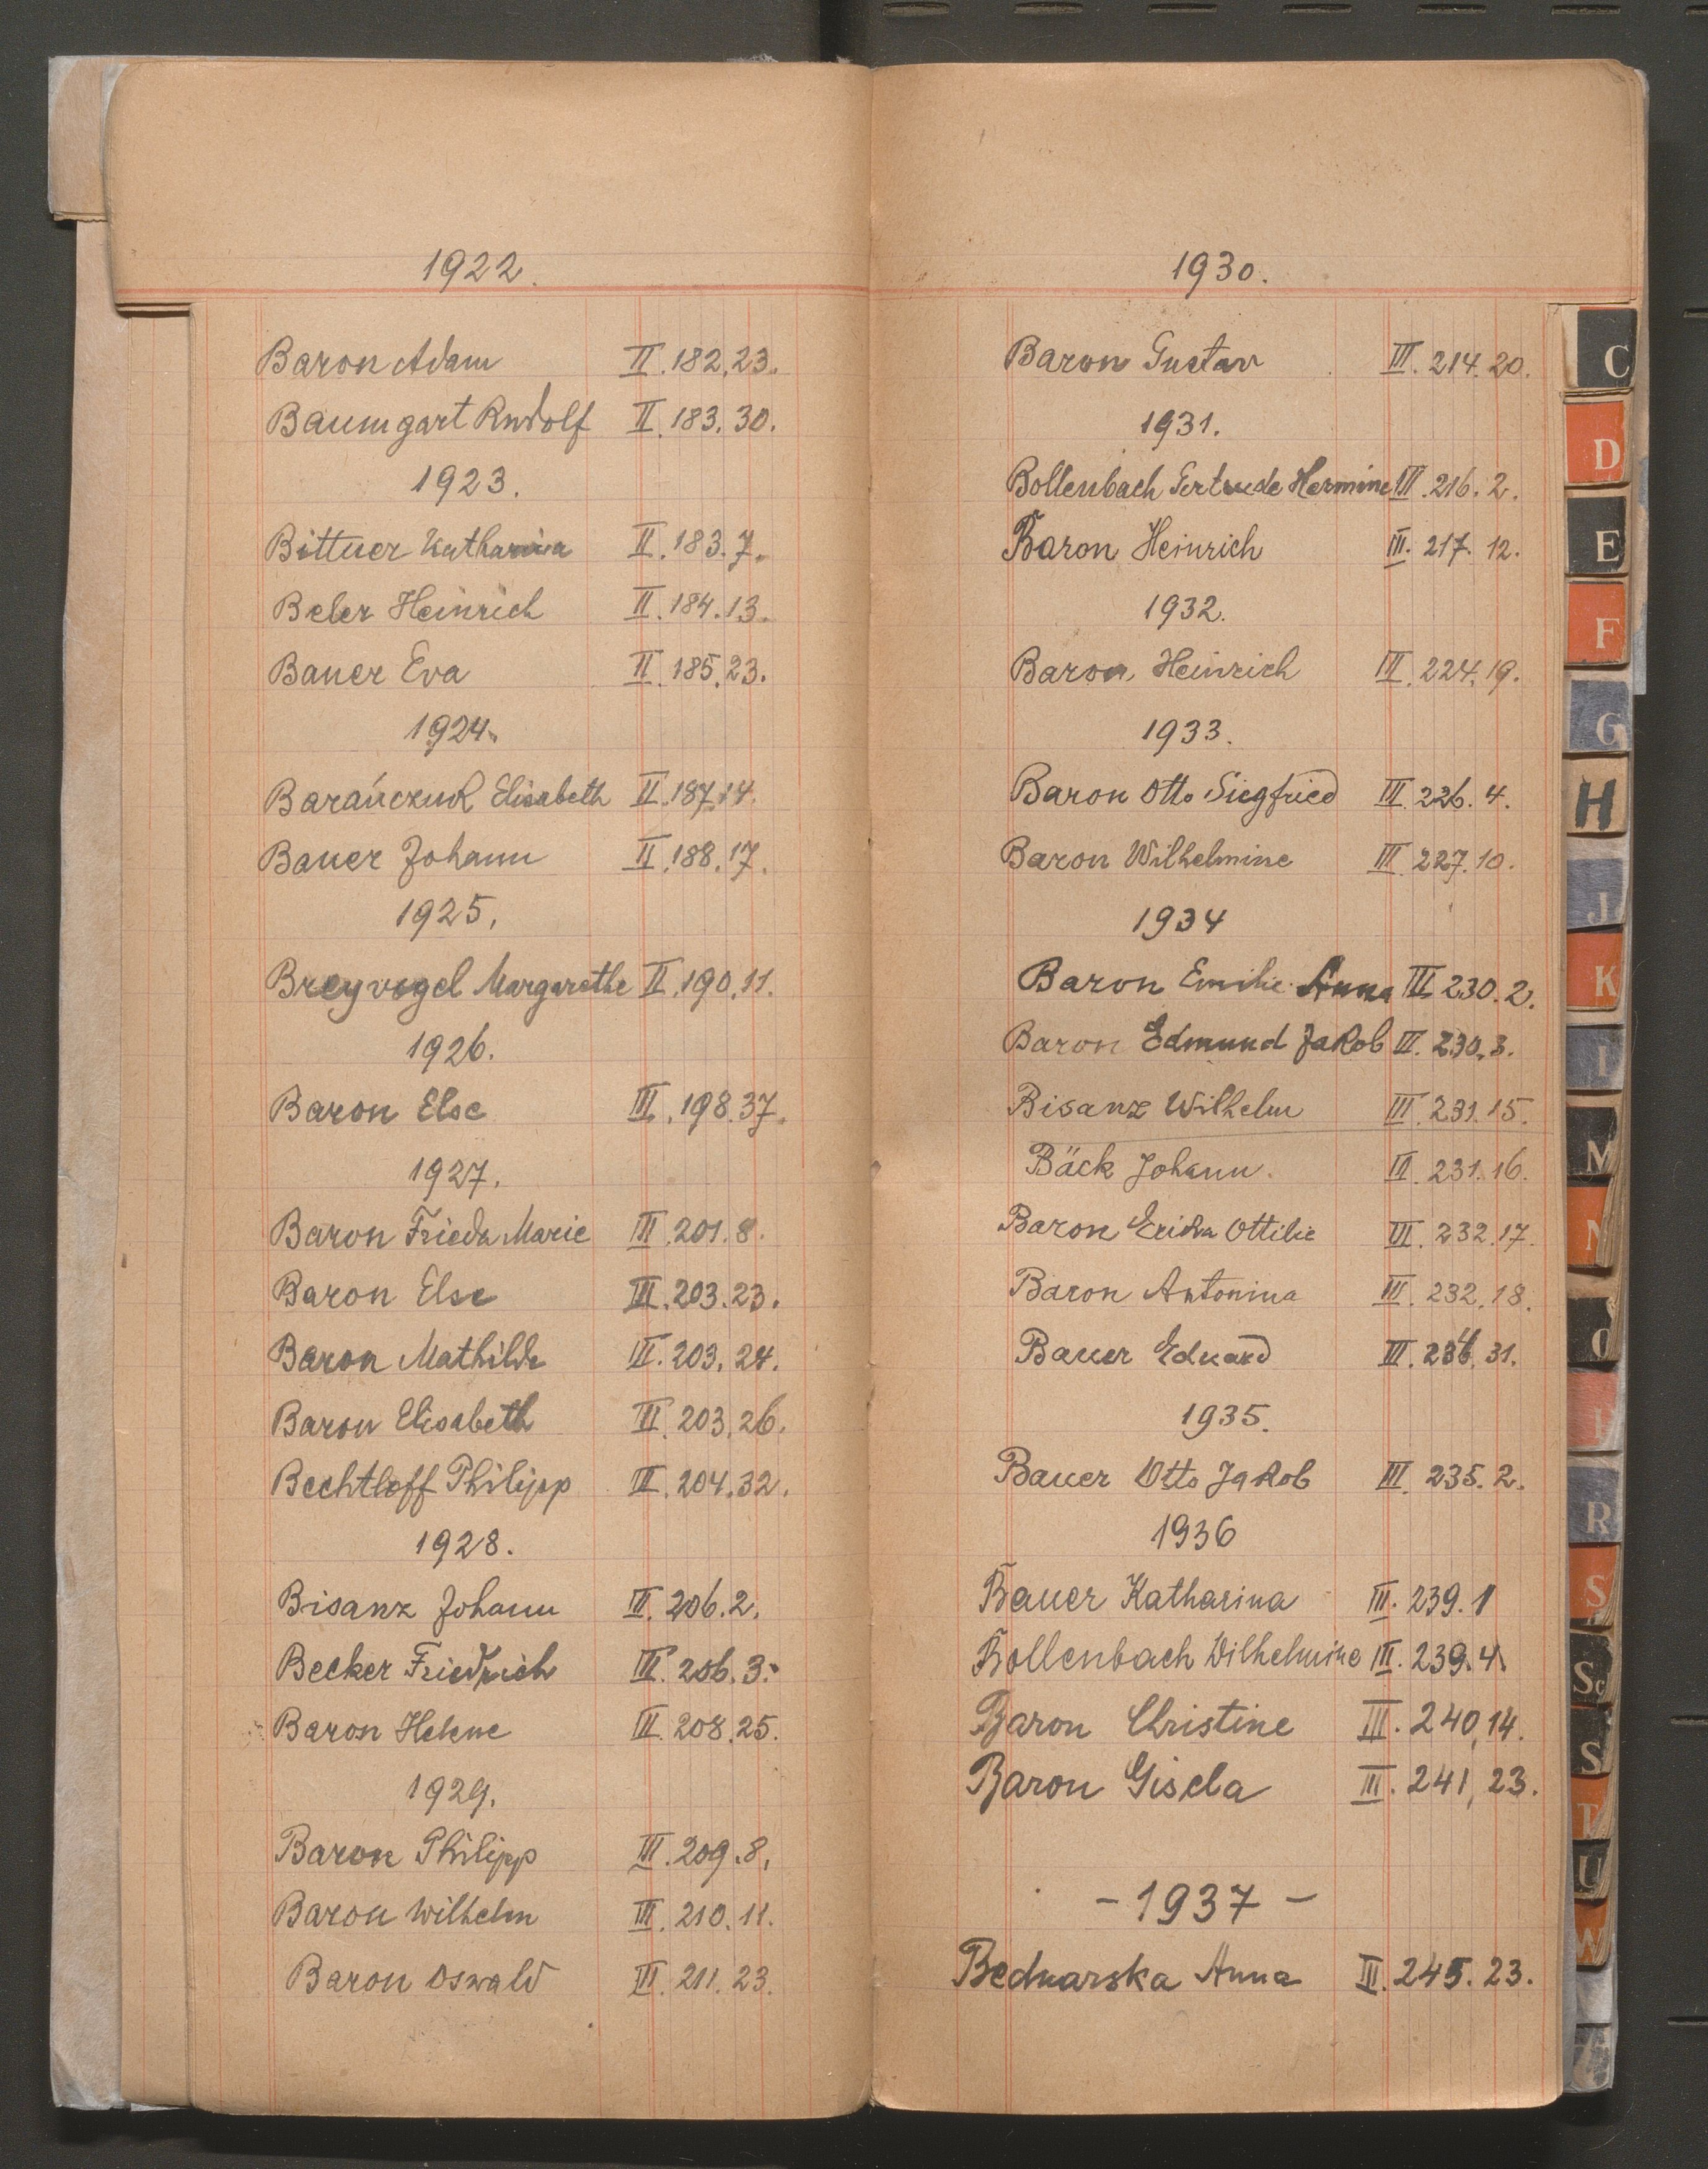 1922.
Baron Adam II. 182. 23.
Baumgart Rudolf II. 183. 30.
1923.
Bittner Katharina II. 183. 7.
Beler Heinrich II. 184. 13.
Bauer Eva II. 185. 23.
1924.
Barańczuk Elisabeth II. 187. 14.
Bauer Johann II. 188. 17.
1925.
Breyvogel Margarethe II. 190. 11.
1926.
Baron Else III. 198. 37.
1927.
Baron Frieda Marie III. 201. 8.
Baron Else III. 203. 23.
Baron Mathilde III. 203. 24.
Baron Elisabeth III. 203. 26.
Bechtloff Philipp III. 204. 32.
1928.
Bisanz Johann III. 206. 2.
Becker Friedrich III. 206. 3.
Baron Helene III. 208. 25.
1929.
Baron Philipp III. 209. 8.
Baron Wilhelm III. 210. 11.
Baron Oswald III. 211. 23.
1930.
Baron Gustav III. 214. 20.
1931.
Bollenbach Gertrude Hermine III. 216. 2.
Baron Heinrich III. 217. 12.
1932.
Baron Heinrich III. 224. 19.
1933.
Baron Otto Siegfried III. 226. 4.
Baron Wilhelmine III. 227. 10.
1934
Baron Emilie Anna III 230. 2.
Baron Edmund Jakob III. 230. 3.
Bisanz Wilhelm III. 231. 15.
Bäck Johann. III. 231. 16.
Baron Erika Ottilie III. 232. 17.
Baron Antonina III. 232. 18.
Bauer Eduard III. 31.
1935.
Bauer Otto Jakob III. 235. 2.
1936
Bauer Katharina III. 239. 1
Bollenbach Wilhelmine III. 239. 4.
Baron Christine III. 240, 14.
Baron Gisela III. 241, 23.
- 1937 -
Bednarska Anna III. 245. 23.
C
D
E
F
G
H
J
K
M
N
O
R
S
Sc
S
T
U
W